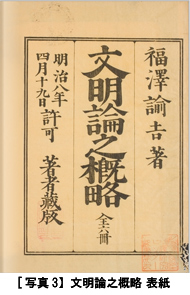 福澤諭吉著
文明論之概略 全六冊
明治八年
四月十九日許可
著者藏版
[写真3] 文明論之概略 表紙